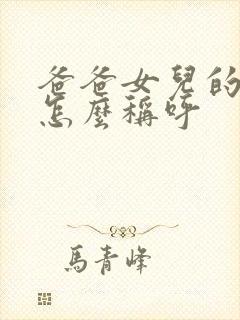 爸爸女兒的
怎麼稱呼
馬青峰